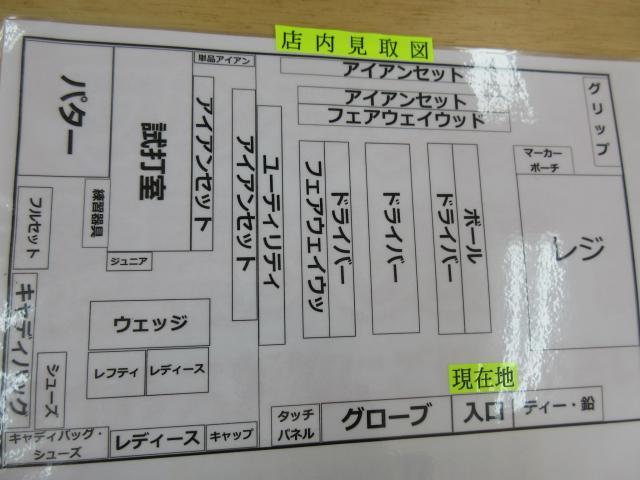 店内見取図
単品アイアン
アイアンセット
グリップ
パター
試打室
アイアンセット
アイアンセット
ユーティリティ
アイアンセット
フェアウェイウッド
マーカー
ポーチ
フルセット
練習器具
ジュニア
フェアウェイウッ
ドライバー
ドライバー
ドライバー
ボール
レジ
キャディバッグ
ウェッジ
シューズ
レフティ
レディース
現在地
キャディバッグ・
シューズ
レディース
キャップ
タッチ
パネル
グローブ
入口
ティー・鉛